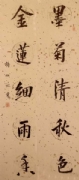 墨菊清秋色
金蓮細雨香